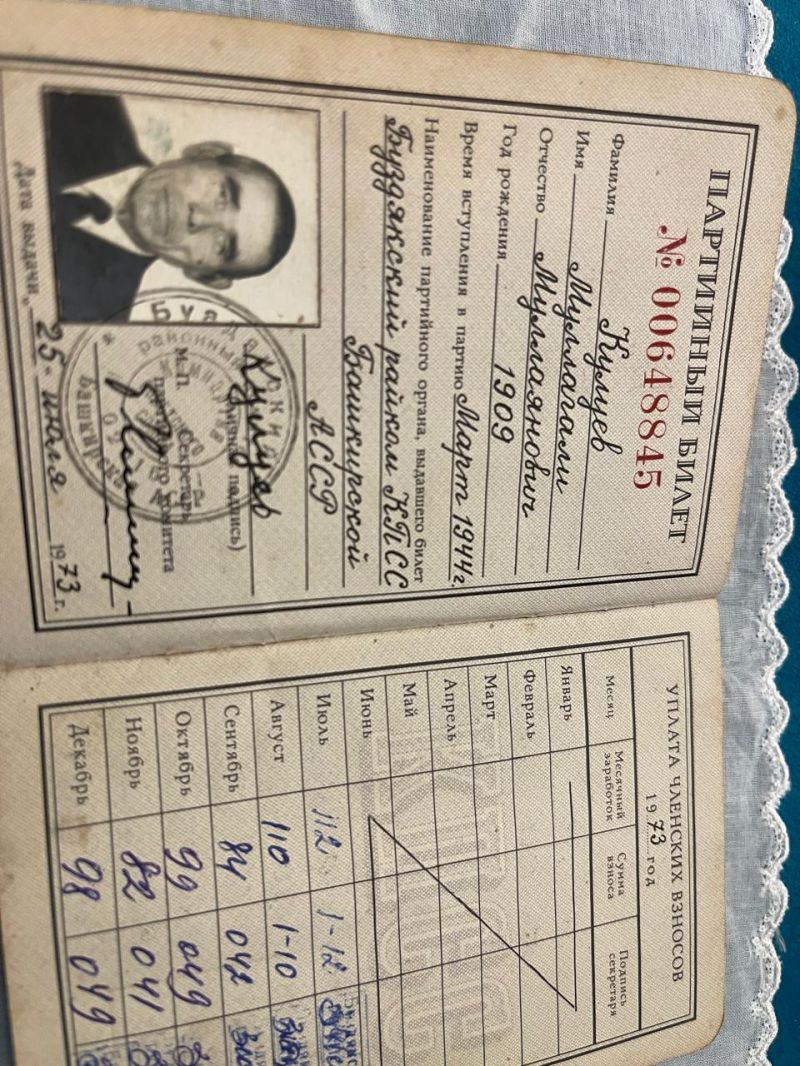 ПАРТИЙНЫЙ БИЛЕТ
№ 00648845
Фамилия Кулуев
Имя Муллагали
Отчество Муллаянович
Год рождения 1909
Время вступления в партию Март 1944г.
Наименование партийного органа, выдавшего билет
Буздякский райком КПСС
Башкирской
АССР
Кулуев
(личная подпись)
М.П. Секретарь
партийного комитета
Дата выдачи 25 июля 1973 г.
УПЛАТА ЧЛЕНСКИХ ВЗНОСОВ
1973 год
Месяц Месячный заработок Сумма взноса Подпись секретаря
Январь
Февраль
Март
Апрель
Май
Июнь
Июль 112 1-12
Август 110 1-10
Сентябрь 84 042
Октябрь 99 049
Ноябрь 82 041
Декабрь 98 049